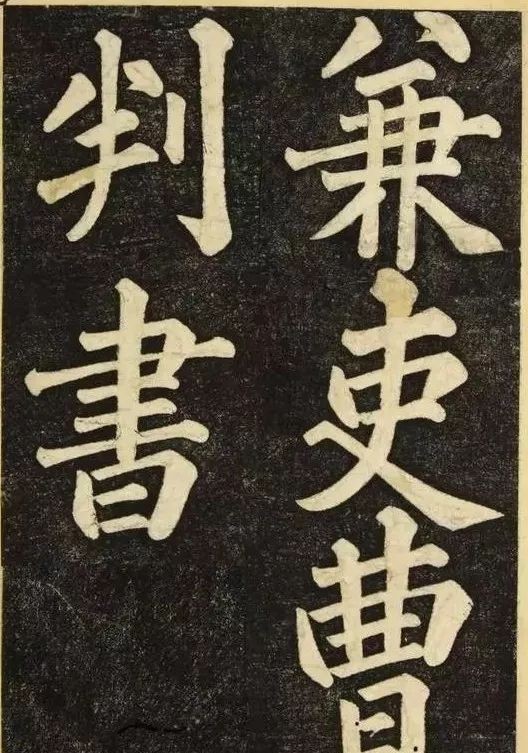 兼吏曹
判書